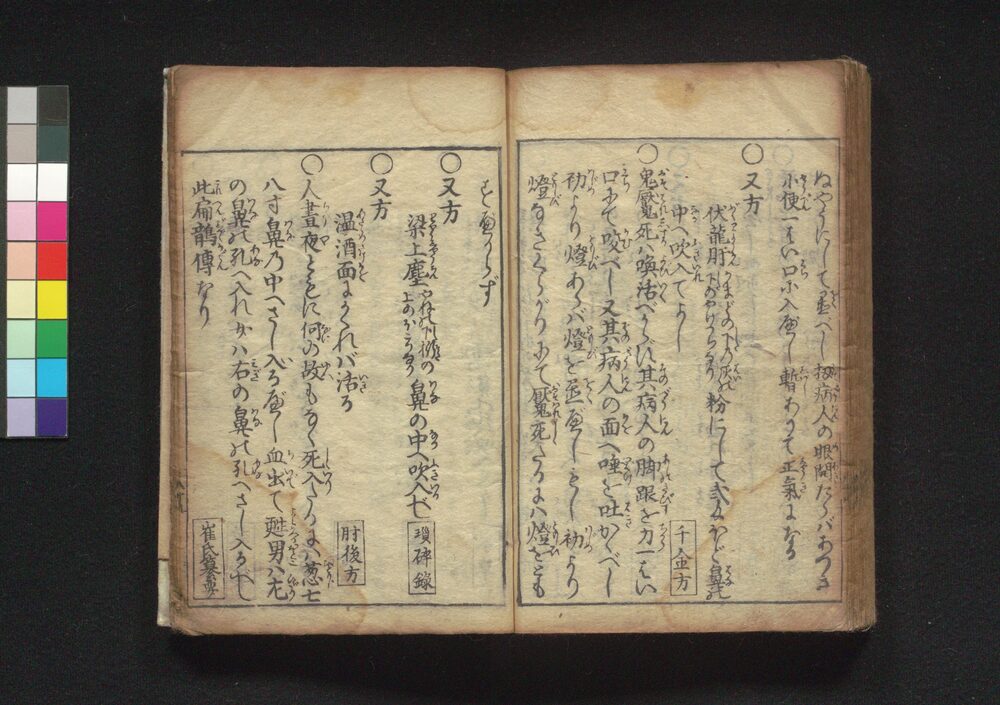 ねやうにして置へし扨病人の眼開たらバあつき
小便一はい口へ入べし暫ありて正氣になる
○又方
伏龍肝 かまどの下のやけつちなり 粉にして弐匁ほど鼻の
中へ吹入てよし 千金方
○鬼魘死ハ喚活べからず其病人の脚跟を力一はい
口にて咬べし又其病人の面へ唾を吐かくべし
初より燈あらバ燈を置べしもし初より
燈なきくらがりにて魘死たるにハ燈をとも
すべからず
○又方
梁上塵 の鼻の中へ吹入べし 瑣碎録
○又方
温酒面にかくれバ活る 肘後方
○人晝夜ともに何の故もなく死入たるにハ葱七
八寸鼻乃中へさし入るべし血出て甦男ハ左
の鼻の孔へ入れ女ハ右の鼻の孔へさし入るべし
此扁鵲傳なり 崔氏纂要